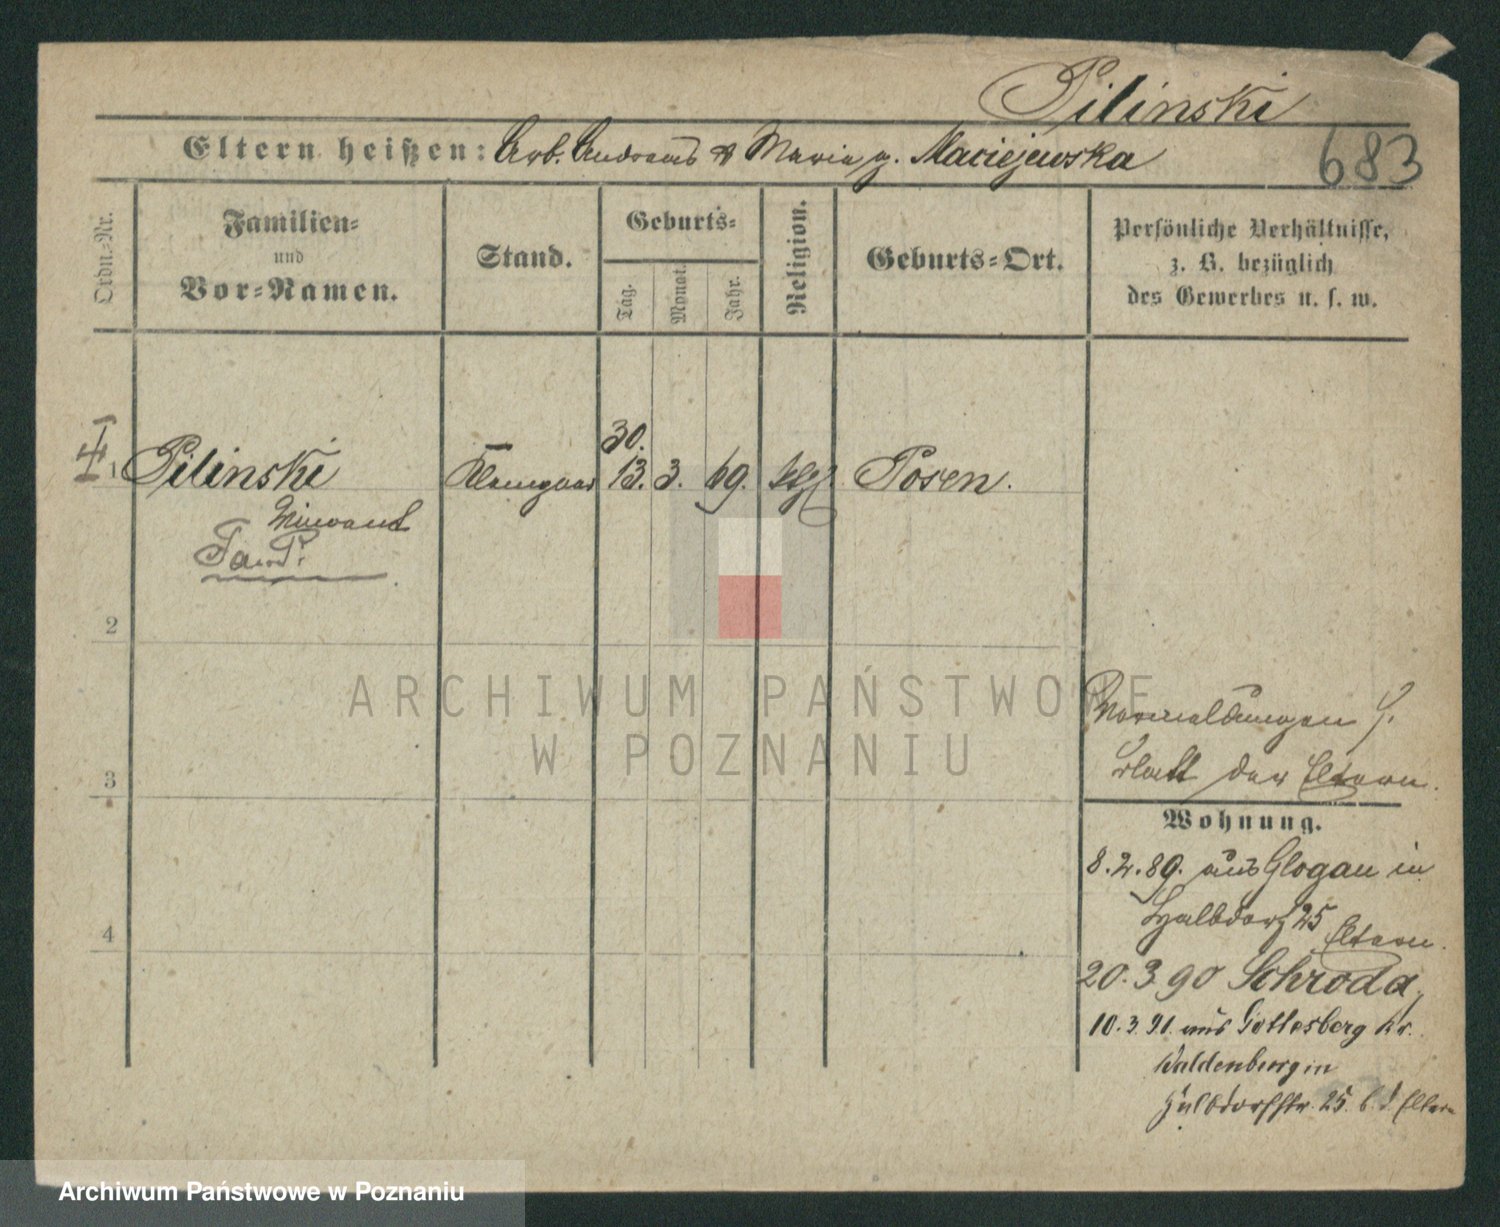 Pilinski
Eltern heißen: Arb. Andreas & Maria g. Maciejewska
683
Ordn.-Nr.
Familien-
und
Vor-Namen.
Stand.
Geburts-
Tag.
Monat.
Jahr.
Religion.
Geburts-Ort.
Persönliche Verhältnisse,
z. B. bezüglich
des Gewerbes u. s. w.
30.
1 Pilinski
Klempner 13. 3. 69. kth. Posen.
2
3
4
ARCHIWUM PAŃSTWOWE
W POZNANIU
Vormeldungen S.
Blatt der Eltern.
Wohnung.
8.2.89. aus Glogau in
Halbdorf 25 Eltern.
20.3 90 Schroda
10.3.91. aus Gottesberg Kr.
Waldenburg in
Halbdorfstr. 25. b. d. Eltern
Archiwum Państwowe w Poznaniu